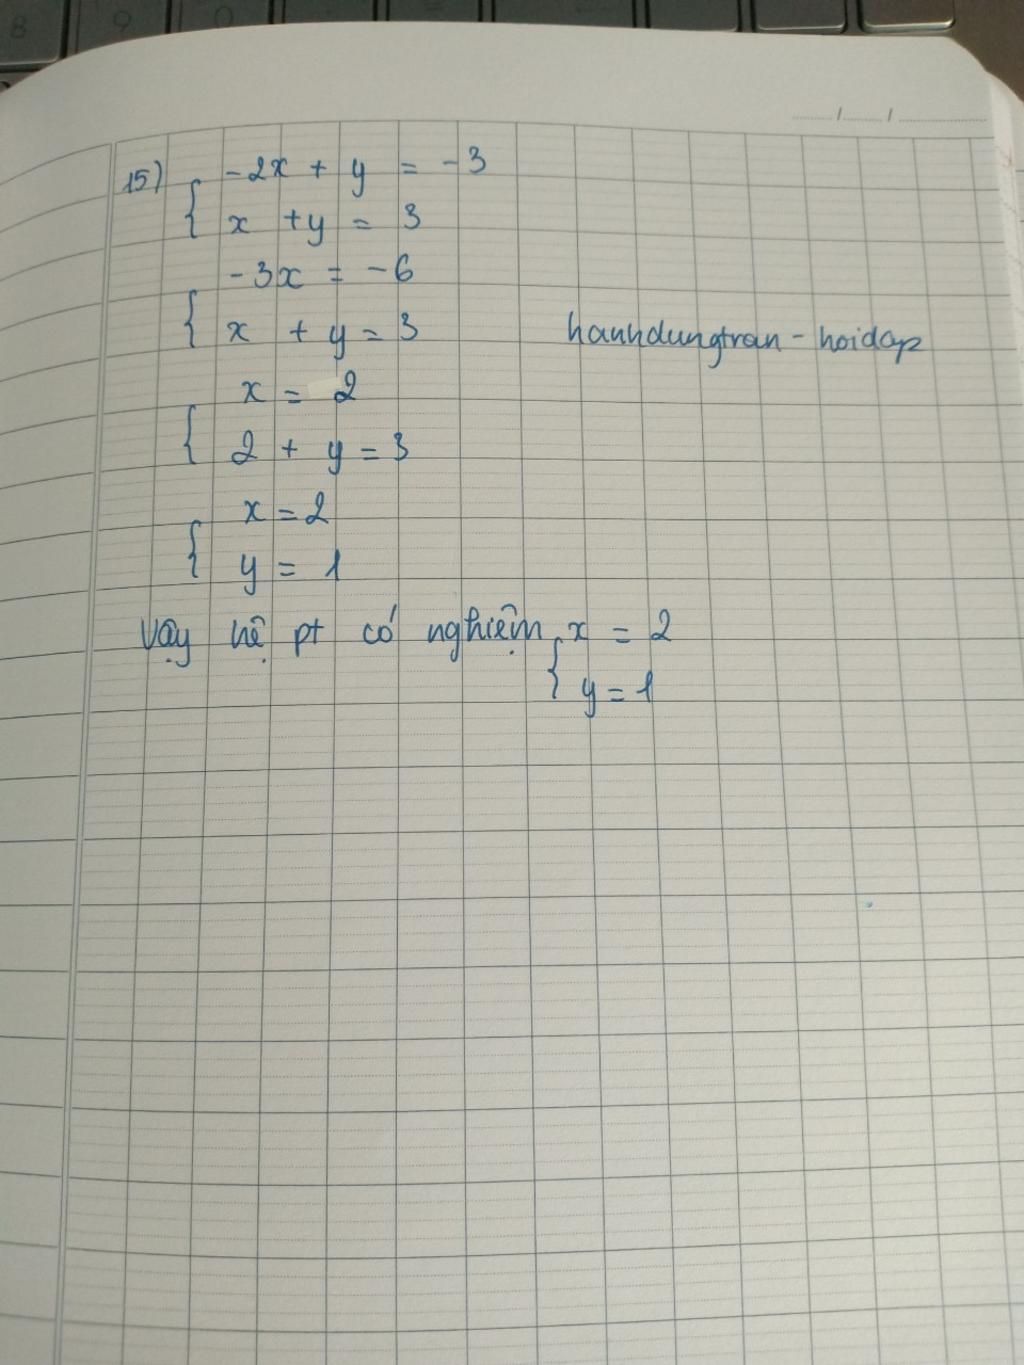 8 9 0
15) { -2x + y = -3
x + y = 3
{ -3x = -6
x + y = 3
hanhdungtran - hoidap
{ x = 2
2 + y = 3
{ x = 2
y = 1
Vậy hệ pt có nghiệm { x = 2
y = 1